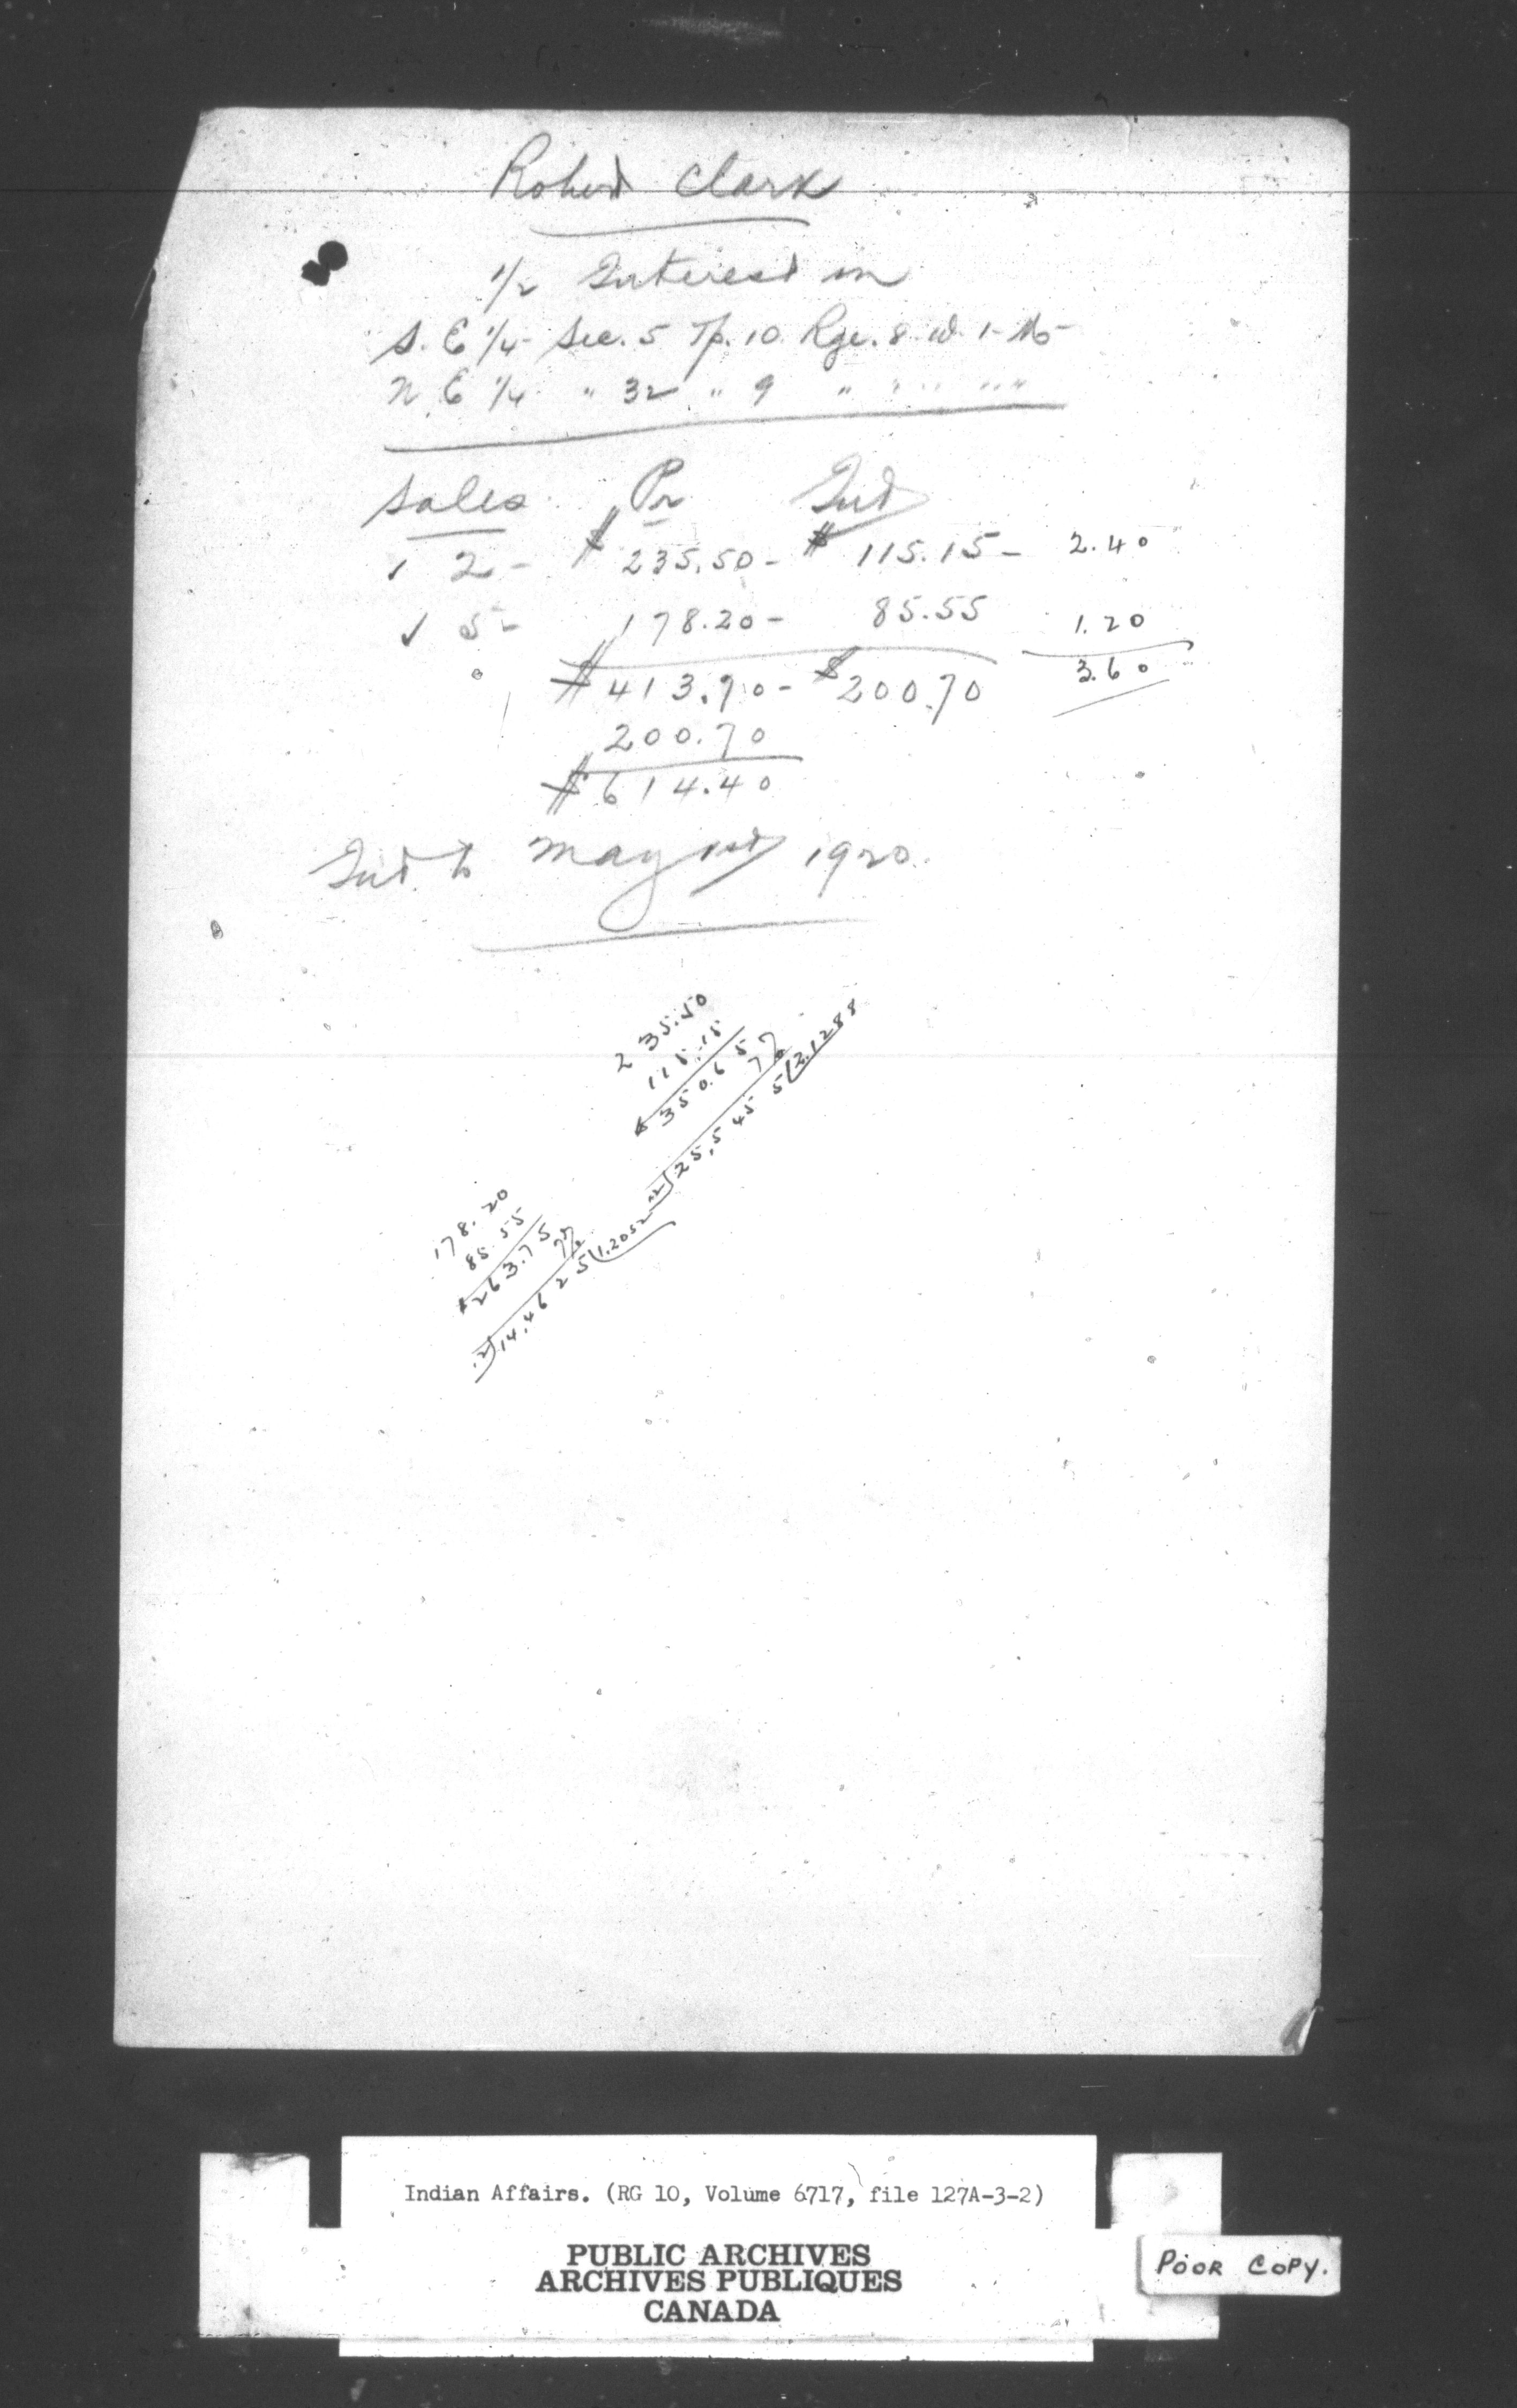 Robert Clark
1/2 Interest in
S. E 1/4 Sec. 5 Tp. 10 Rge. 8 W. 1 M
N. E 1/4 " 32 " 9 " " " " "
Sales Pr Int
✓ 2 - $ 235.50 - $ 115.15 - 2.40
✓ 5 - 178.20 - 85.55 1.20
$ 413.70 - $ 200.70 3.60
200.70
$ 614.40
Int. to May 1st 1920.
235.50
115.15
$ 350.65
7%
12) 25.5455 (2.1288
178.20
85.55
$ 263.75
12) 14.4625 (1.2052
Indian Affairs. (RG 10, Volume 6717, file 127A-3-2)
PUBLIC ARCHIVES
ARCHIVES PUBLIQUES
CANADA
POOR COPY.